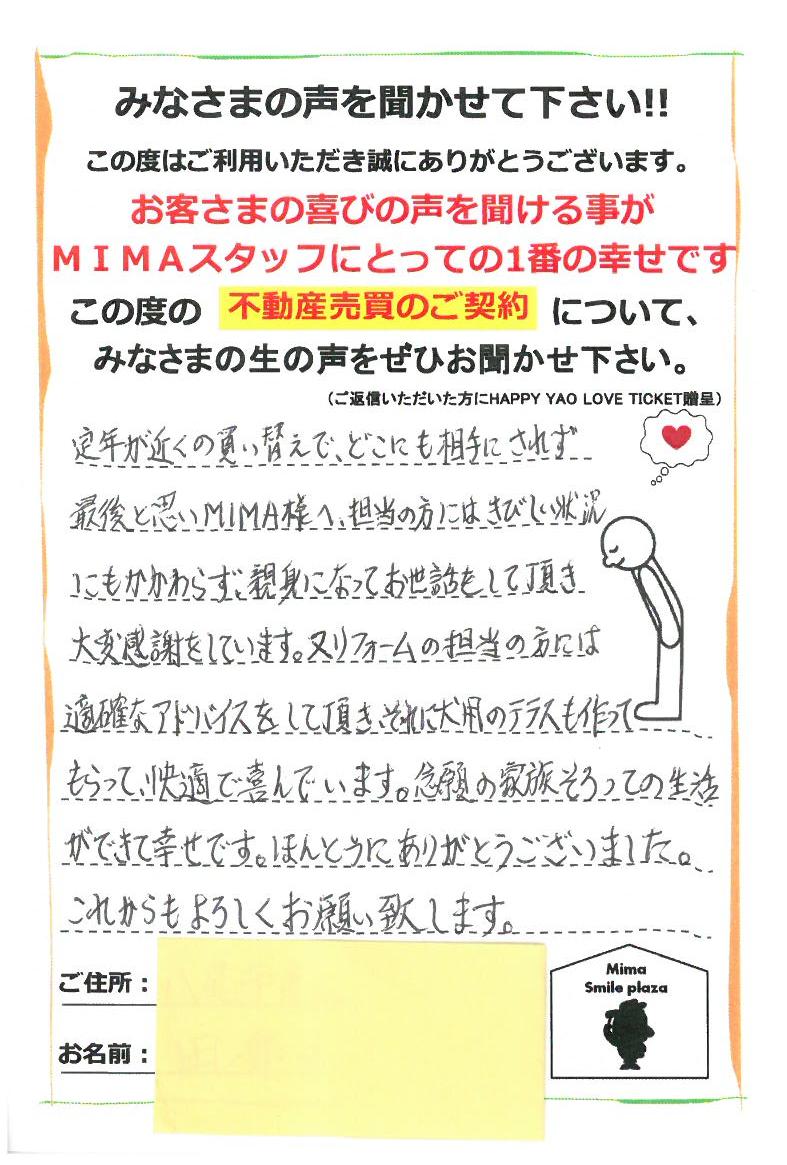 みなさまの声を聞かせて下さい!!
この度はご利用いただき誠にありがとうございます。
お客さまの喜びの声を聞ける事が
ＭＩＭＡスタッフにとっての1番の幸せです
この度の 不動産売買のご契約 について、
みなさまの生の声をぜひお聞かせ下さい。
（ご返信いただいた方にHAPPY YAO LOVE TICKET贈呈）
定年が近くの買い替えで、どこにも相手にされず
最後と思いMIMA様へ、担当の方にはきびしい状況
にもかかわらず、親身になってお世話をして頂き
大変感謝をしています。又リフォームの担当の方には
適確なアドバイスをして頂き、それに犬用のテラスも作って
もらって、快適で喜んでいます。念願の家族そろっての生活
ができて幸せです。ほんとうにありがとうございました。
これからもよろしくお願い致します。
ご住所：
お名前：
Mima
Smile plaza